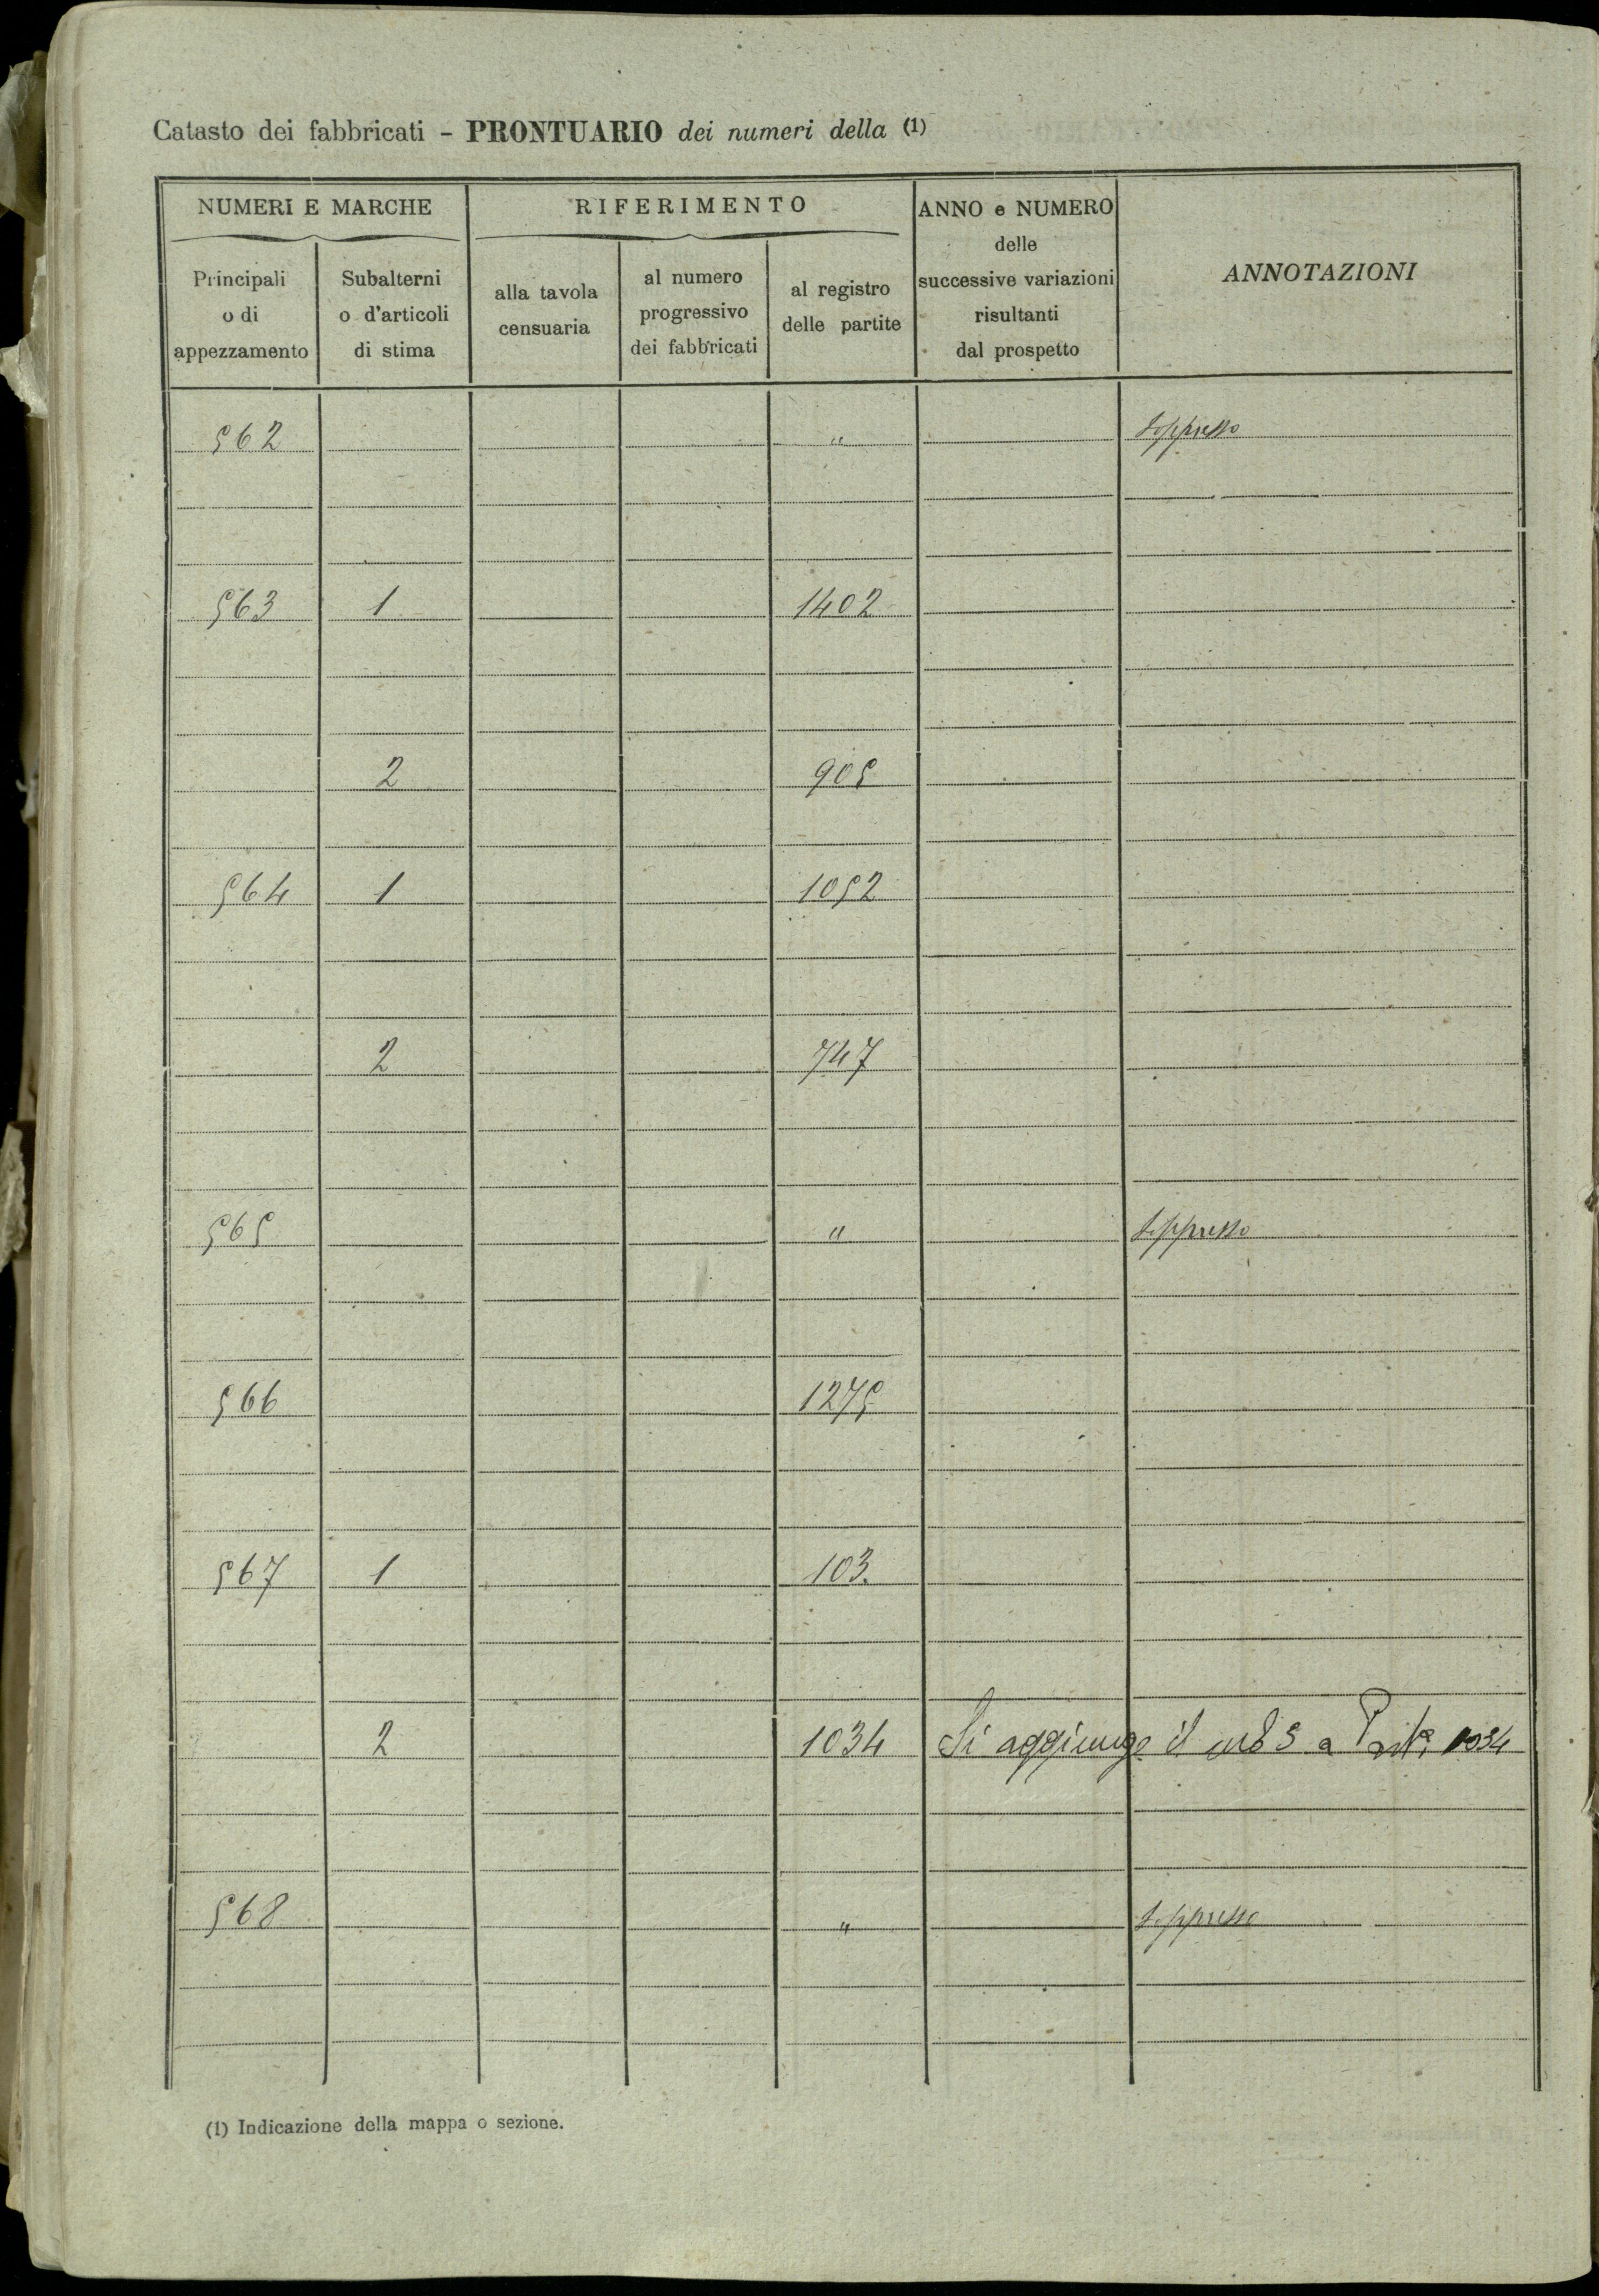 Catasto dei fabbricati - PRONTUARIO dei numeri della (1)
NUMERI E MARCHE
RIFERIMENTO
ANNO e NUMERO
delle
successive variazioni
risultanti
dal prospetto
ANNOTAZIONI
Principali
o di
appezzamento
Subalterni
o d'articoli
di stima
alla tavola
censuaria
al numero
progressivo
dei fabbricati
al registro
delle partite
562 " Soppresso
563 1 1402
2 905
564 1 1052
2 747
565 " Soppresso
566 1275
567 1 103
2 1034 Si aggiunge il a 1034
568 " Soppresso
(1) Indicazione della mappa o sezione.